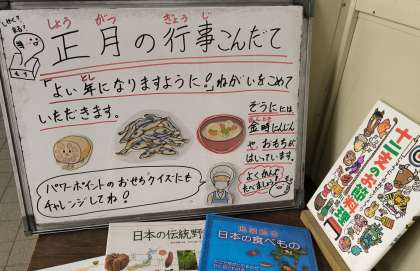 しょう がつ ぎょう じ
正月の行事こんだて
とし
「よい年になりますように!」ねがいをこめて
いただきます。
ぞうにには
金時にんじん
や、おもちが
はいっています。
よくかんで
たべましょう
パワーポイントのおせちクイズにも
チャレンジしてね!
十二支のお節料理
日本の伝統野
日本の食べもの